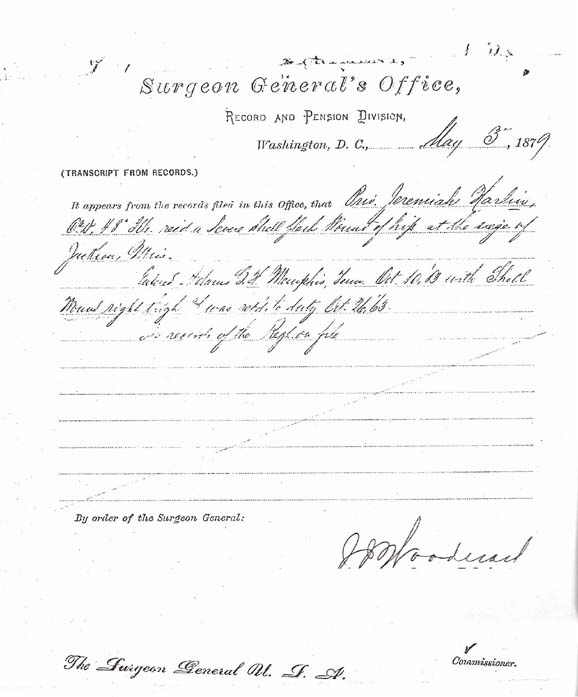 Surgeon General's Office,
RECORD AND PENSION DIVISION,
Washington, D. C., May 3", 1879
(TRANSCRIPT FROM RECORDS.)
It appears from the records filed in this Office, that Priv. Jeremiah
recd a Severe Shell flesh Wound of hip at the siege of
Jackson, Miss.
Entered Adams G.H. Memphis, Tenn. Oct. 10, 63 with Shell
Wound right thigh & was retd. to duty Oct. 26, 63.
records of the Regt. on file
By order of the Surgeon General:
J J Woodward
Commissioner.
The Surgeon General U. S. A.